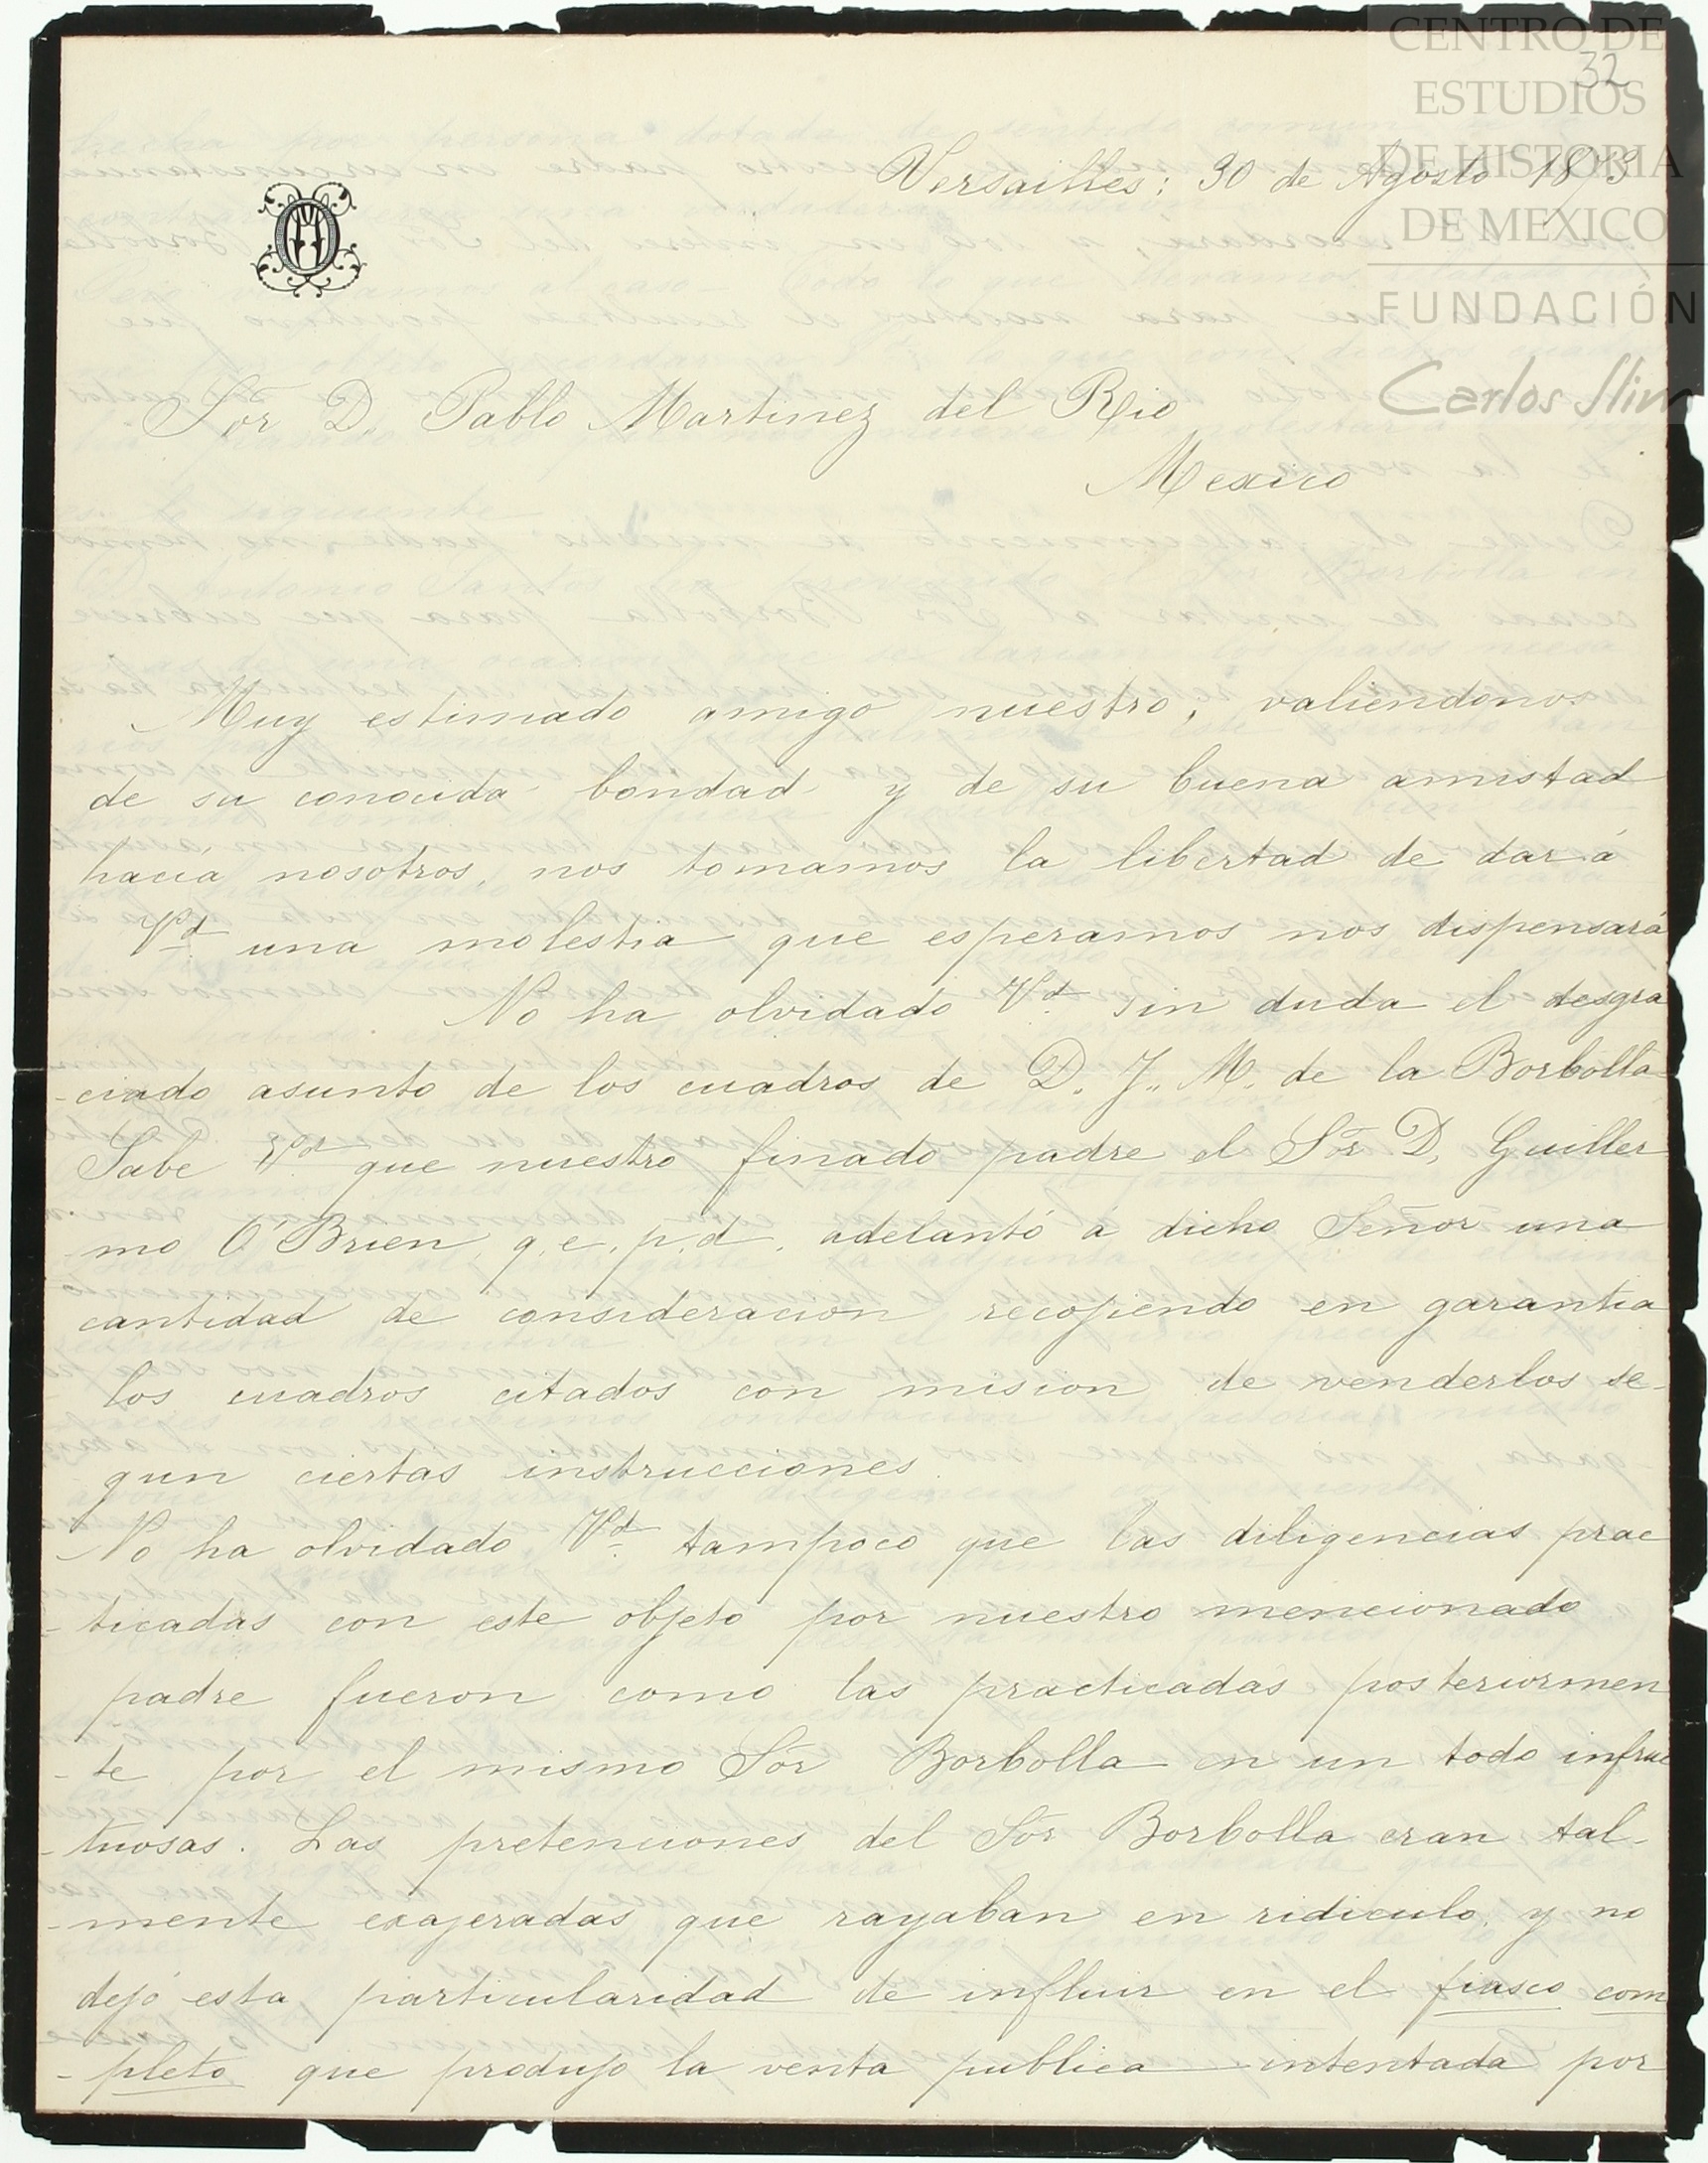 CENTRO DE
ESTUDIOS
DE HISTORIA
DE MEXICO
FUNDACIÓN
Carlos Slim
32
Versailles; 30 de Agosto 1873
Sõr D. Pablo Martinez del Rio
Mexico
Muy estimado amigo nuestro, valiendonos
de su conocida bondad y de su buena amistad
hacia nosotros, nos tomamos la libertad de dar á
Vd una molestia que esperamos nos dispensará
No ha olvidado Vd. sin duda el desgra
-ciado asunto de los cuadros de D. J. M. de la Borbolla
Sabe Vd que nuestro finado padre el Sõr D. Guiller
mo O'Brien, q. e. p. d. adelantó á dicho Señor una
cantidad de consideracion recojiendo en garantia
los cuadros citados con mision de venderlos se-
gun ciertas instrucciones.
No ha olvidado Vd. tampoco que las diligencias prac
-ticadas con este objeto por nuestro mencionado
padre fueron como las practicadas posteriormen
-te por el mismo Sõr Borbolla en un todo infruc
-tuosas. Las pretenciones del Sõr Borbolla eran tal-
-mente exajeradas que rayaban en ridiculo, y no
dejó esta particularidad de influir en el fiasco com
-pleto que produjo la venta publica intentada por